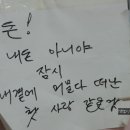 돈!
내돈 아니야
잠시
내곁에 머물다 떠난
첫 사랑 같은것